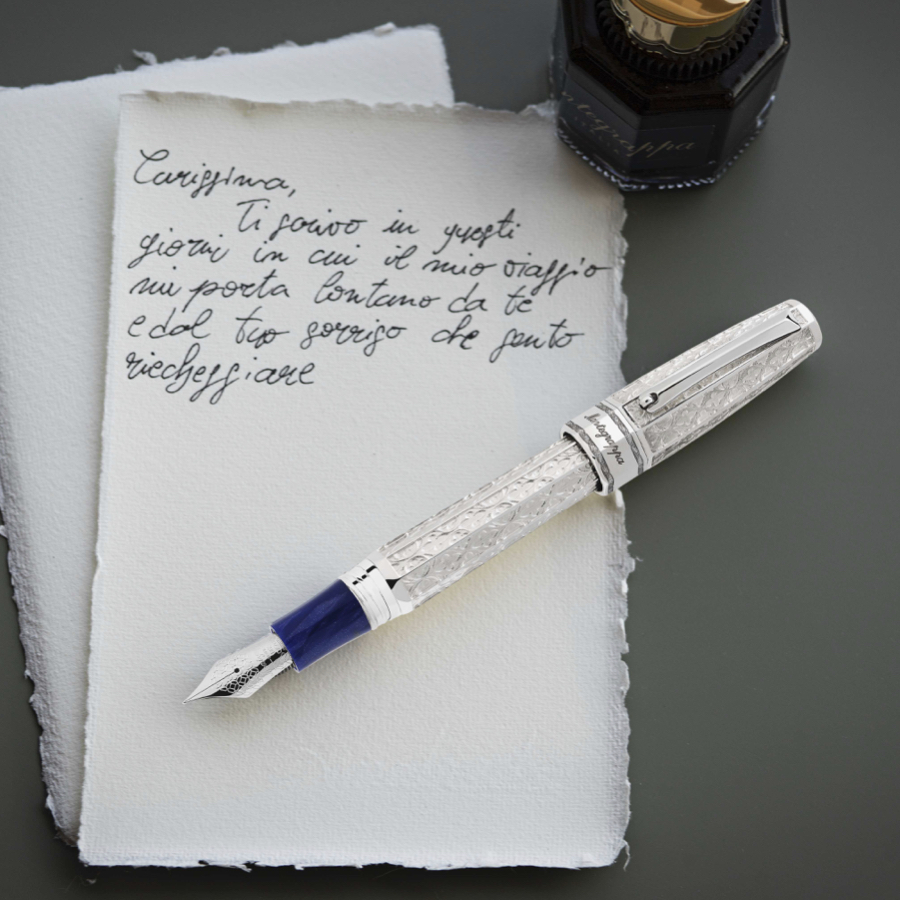 Carissima,
Ti scrivo in questi
giorni in cui il mio viaggio
mi porta lontano da te
e dal tuo sorriso che sento
riecheggiare
Montegrappa